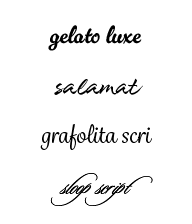 gelato luxe
salamat
grafolita scri
slogp script